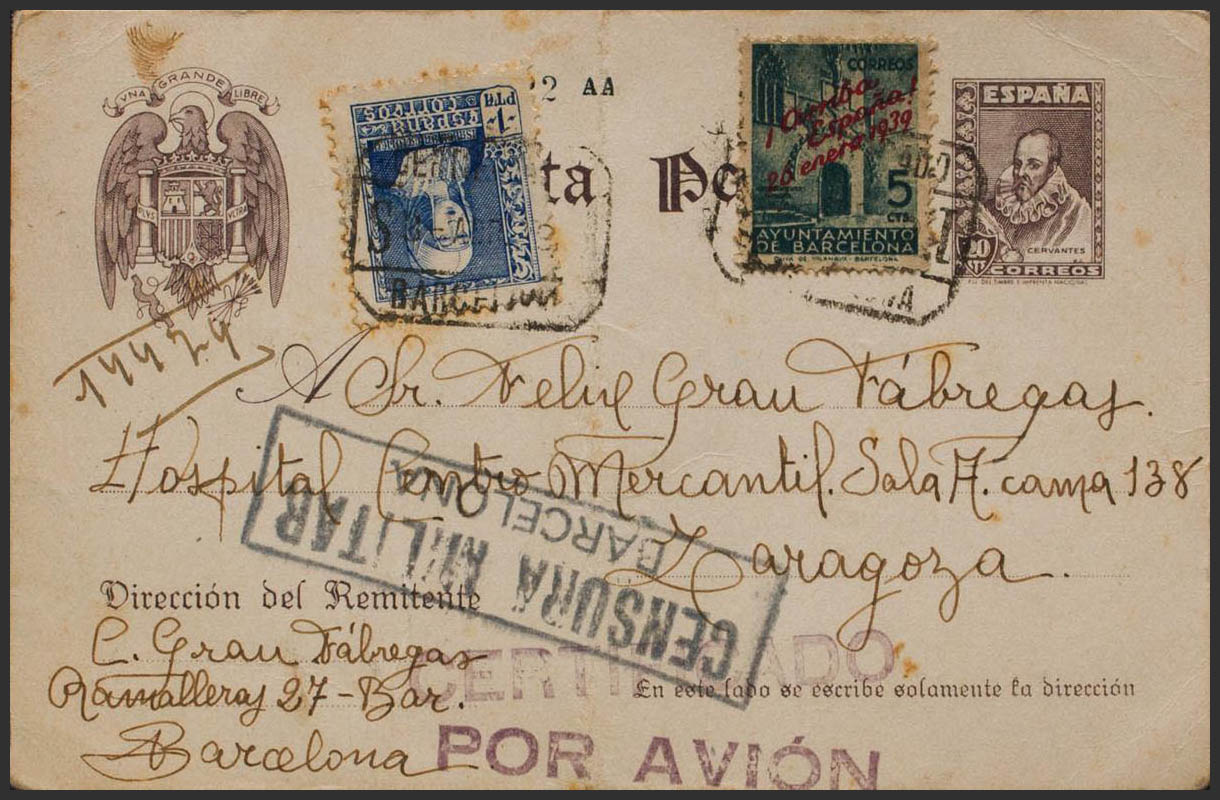 VNA GRANDE LIBRE
PLVS VLTRA
2 AA
-1- PTA
España
CORREOS
BARCELONA
ta Po
CORREOS
¡Arriba
España!
26 enero 1939
5
CTS.
AYUNTAMIENTO
DE BARCELONA
ESPAÑA
CERVANTES
20
CORREOS
F.N. DEL TIMBRE E IMPRENTA NACIONAL
14429
A Sr. Feliu Grau Fábregas.
Hospital Centro Mercantil. Sala A. cama 138
Zaragoza.
CENSURA MILITAR
BARCELONA
Dirección del Remitente
C. Grau Fábregas
Ramalleras 27-Bar.
Barcelona
CERTIFICADO
En este lado se escribe solamente la dirección
POR AVIÓN